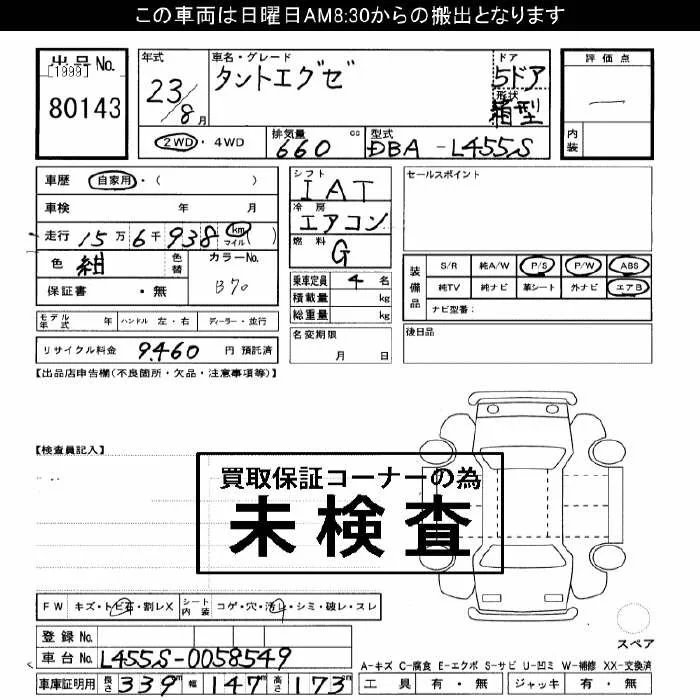 この車両は日曜日AM8:30からの搬出となります
出品No.
[1999]
80143
年式 23/8月
車名・グレード
タントエグゼ
ドア
5ドア
形状
箱型
評価点
—
内装
2WD・4WD
排気量 660 cc
型式 DBA-L455S
車歴 自家用・( )
車検 年 月
走行 15万6千938 km マイル( )
色 紺
色替
カラーNo. B70
保証書 ・無
シフト
IAT
冷房
エアコン
燃料
G
乗車定員 4 名
積載量 kg
総重量 kg
セールスポイント
装備品
S/R 純A/W P/S P/W ABS
純TV 純ナビ 革シート 外ナビ エアB
ナビ型番:
モデル年式 年 ハンドル 左・右 ディーラー・並行
名変期限
月 日
後日品
リサイクル料金 9,460 円 預託済
【出品店申告欄(不良箇所・欠品・注意事項等)】
【検査員記入】
買取保証コーナーの為
未検査
FW キズ・トビ石・割レX
シート内装 コゲ・穴・汚レ・シミ・破レ・スレ
スペア
登録No.
車台No. L455S-0058549
A-キズ C-腐食 E-エクボ S-サビ U-凹ミ W-補修 XX-交換済
車庫証明用 長さ 339 m 幅 147 m 高さ 173 cm
工具 有・無 ジャッキ 有・無